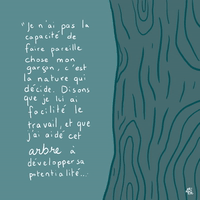 "Je n'ai pas la
capacité de
faire pareille
chose mon
garçon, c'est
la nature qui
décide. Disons
que je lui ai
facilité le
travail, et que
j'ai aidé cet
arbre à
développer sa
potentialité...